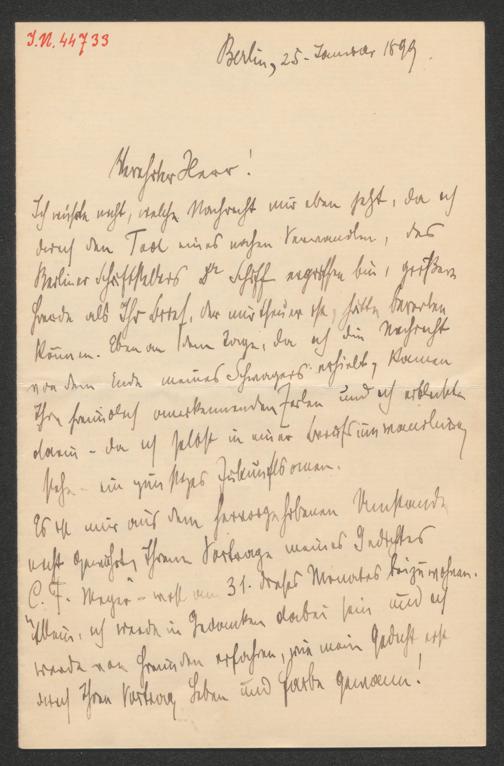 I.N. 44733
Berlin, 25. Januar 1899.
Verehrter Herr!
Ich wüßte nicht, welche Nachricht mir eben jetzt, da ich
durch den Tod eines nahen Verwandten, des
Berliner Schriftstellers Dr Schiff ergriffen bin, größere
Freude als Ihr Brief, der mir theuer ist, hätte bereiten
können. Eben an dem Tage, da ich die Nachricht
von dem Ende meines Schwagers erhielt, kamen
Ihre freundlich anerkennenden Zeilen und ich erblickte
darin - da ich selbst in einer Berufsumwandlung
stehe - ein günstiges Zukunftsomen.
Es ist mir aus dem hervorgehobenen Umstande
nicht Ihrem Vortrage meines Gedichtes
C. F. Meyer - am 31. dieses Monates beizuwohnen.
Allein, ich werde in Gedanken dabei sein und ich
werde von Freunden erfahren, wie mein Gedicht erst
durch Ihren Vortrag Leben und Farbe gewann!